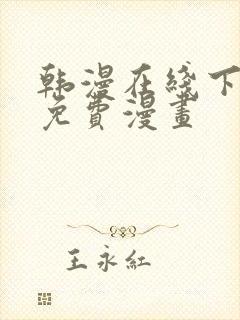 韩漫在綫下
免費漫畫
王永紅